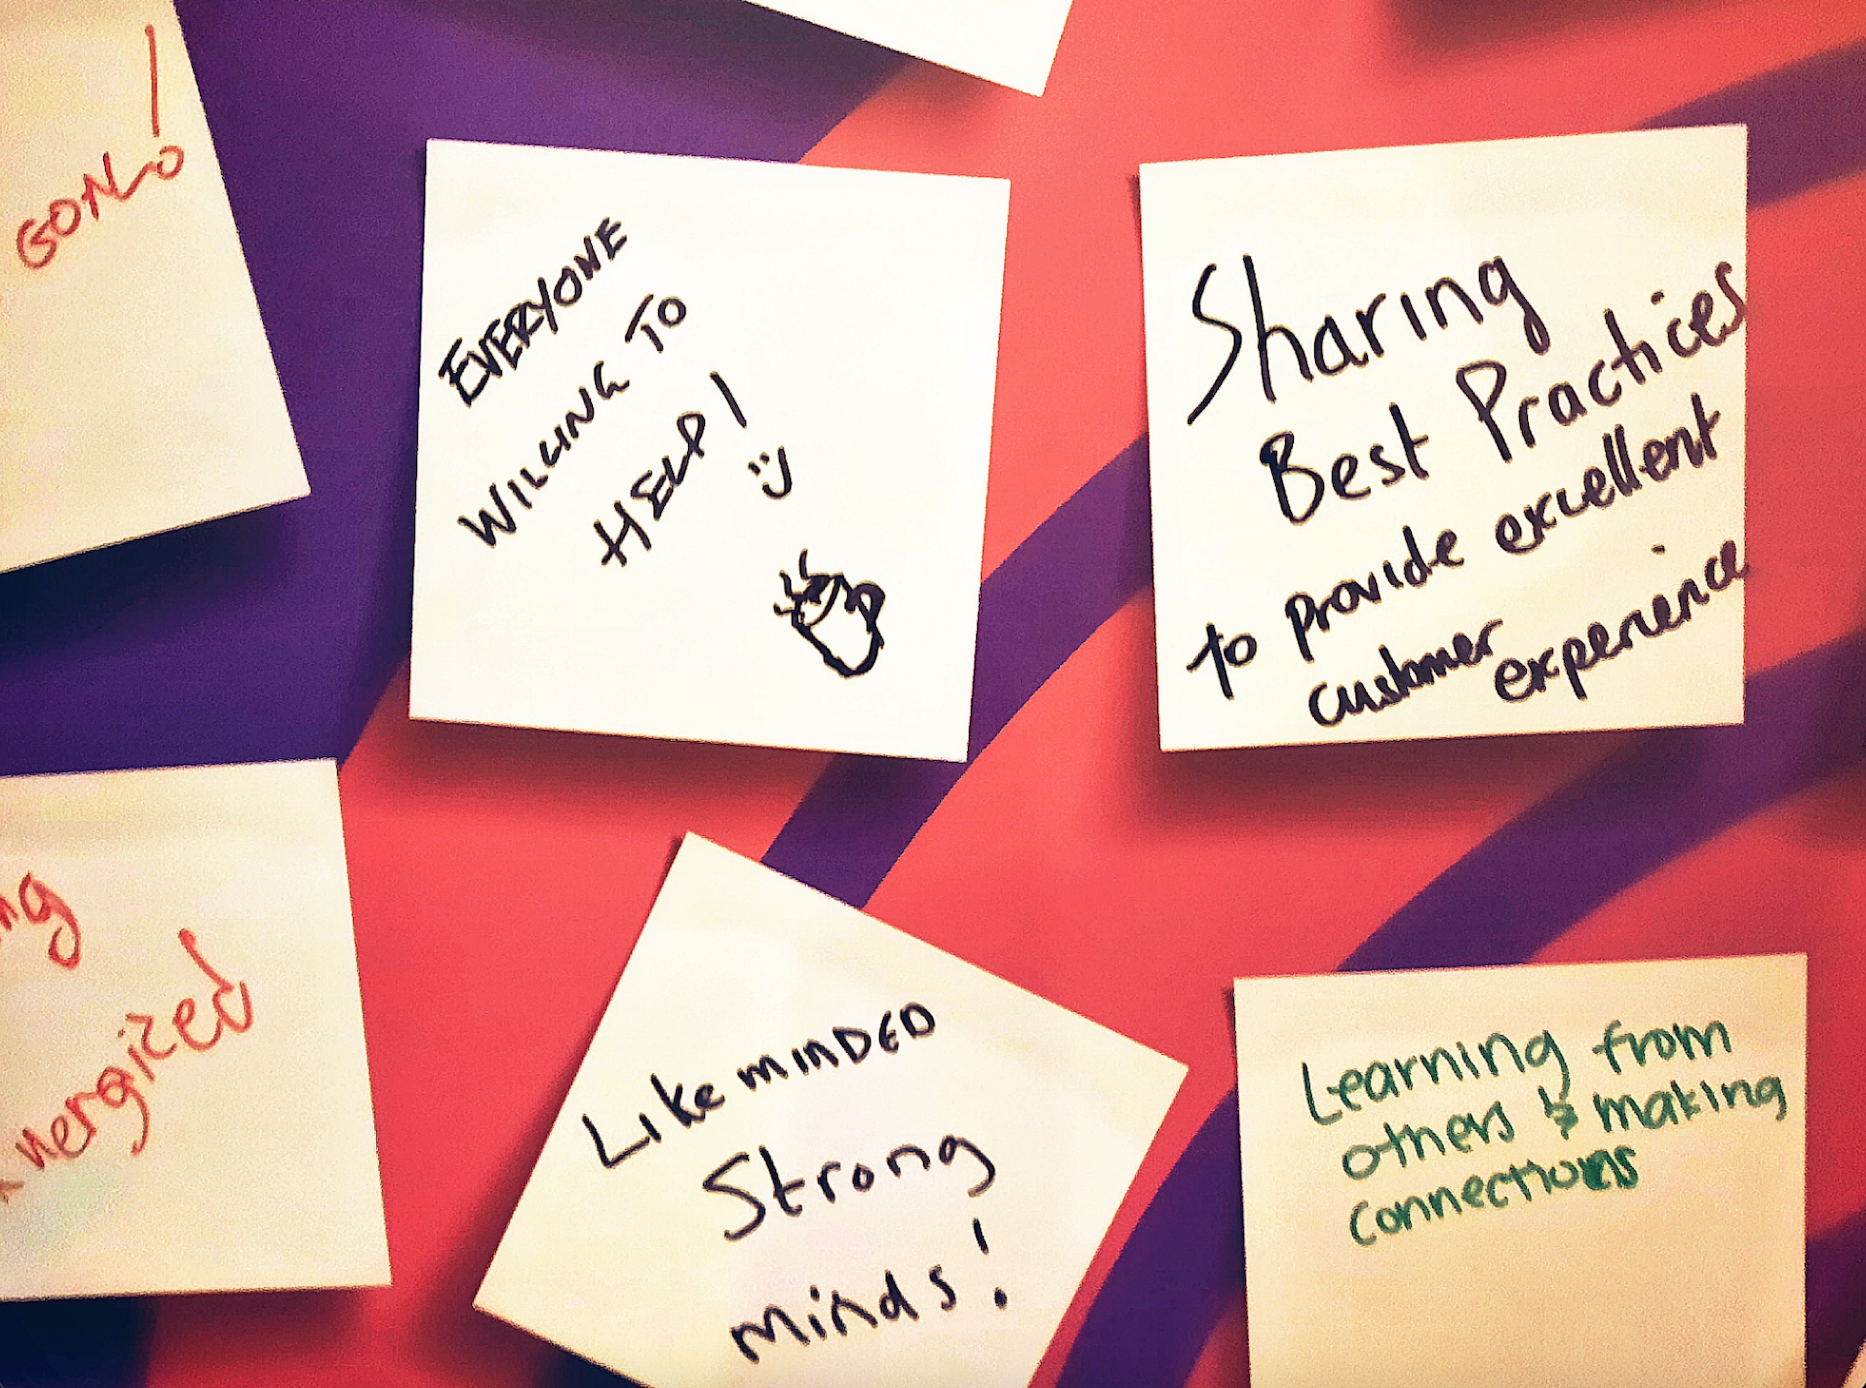 EVERYONE
WILLING TO
HELP!
Sharing
Best Practices
to provide excellent
customer experience
ng
nergized
Like minDED
Strong
minds!
Learning from
others & making
connections